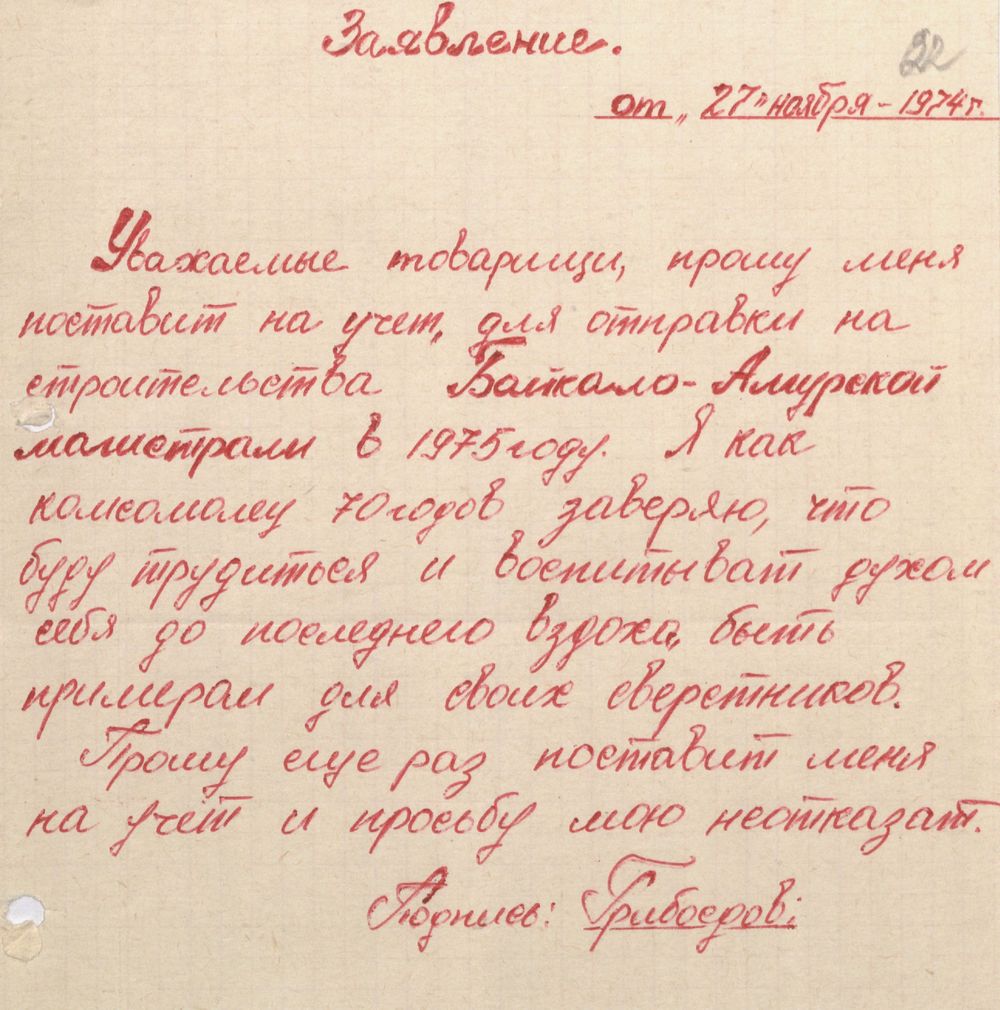 Заявление.
22
от „27" ноября - 1974 г.
Уважаемые товарищи, прошу меня
поставит на учет, для отправки на
строительства Байкало-Амурской
магистрали в 1975 году. Я как
комсомолец 70 годов заверяю, что
буду трудиться и воспитыват духом
себя до последнего вздоха, быть
примером для своих сверстников.
Прошу еще раз поставит меня
на учет и просьбу мою неотказат.
Подпись: Грибоедов: